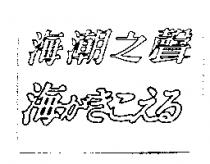 海潮之聲
海がきこえる